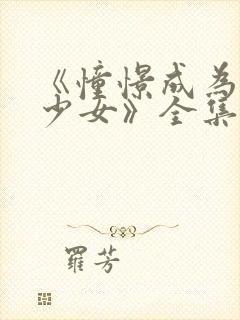 《憧憬成为
少女》全集
羅芳